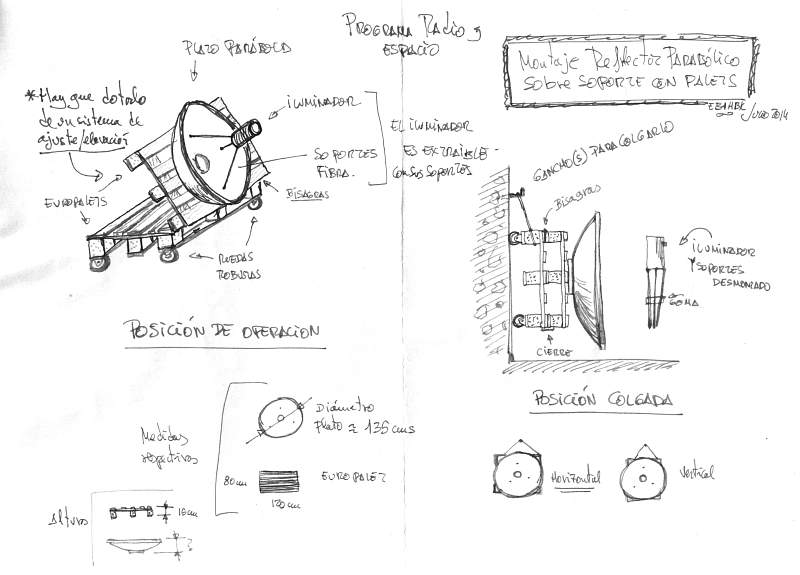 PROGRAMA RADIO Y
ESPACIO
Montaje Reflector PARABÓLICO
SOBRE SOPORTE CON PALETS
EB4HBL
JULIO 2014
PLATO PARÁBOLA
*Hay que dotarlo
de un sistema de
ajuste/elevación
EUROPALETS
ILUMINADOR
SOPORTES
FIBRA.
EL ILUMINADOR
ES EXTRAIBLE
CON SUS SOPORTES
BISAGRAS
RUEDAS
ROBUSTAS
POSICIÓN DE OPERACION
GANCHO(S) PARA COLGARLO
Bisagras
ILUMINADOR
Y SOPORTES
DESMONTADO
GOMA
CIERRE
POSICIÓN COLGADA
Medidas
respectivas
Diámetro
Plato ≈ 135 cms
80cm
EUROPALET
120cm
Altura
15cm
?
Horizontal
Vertical